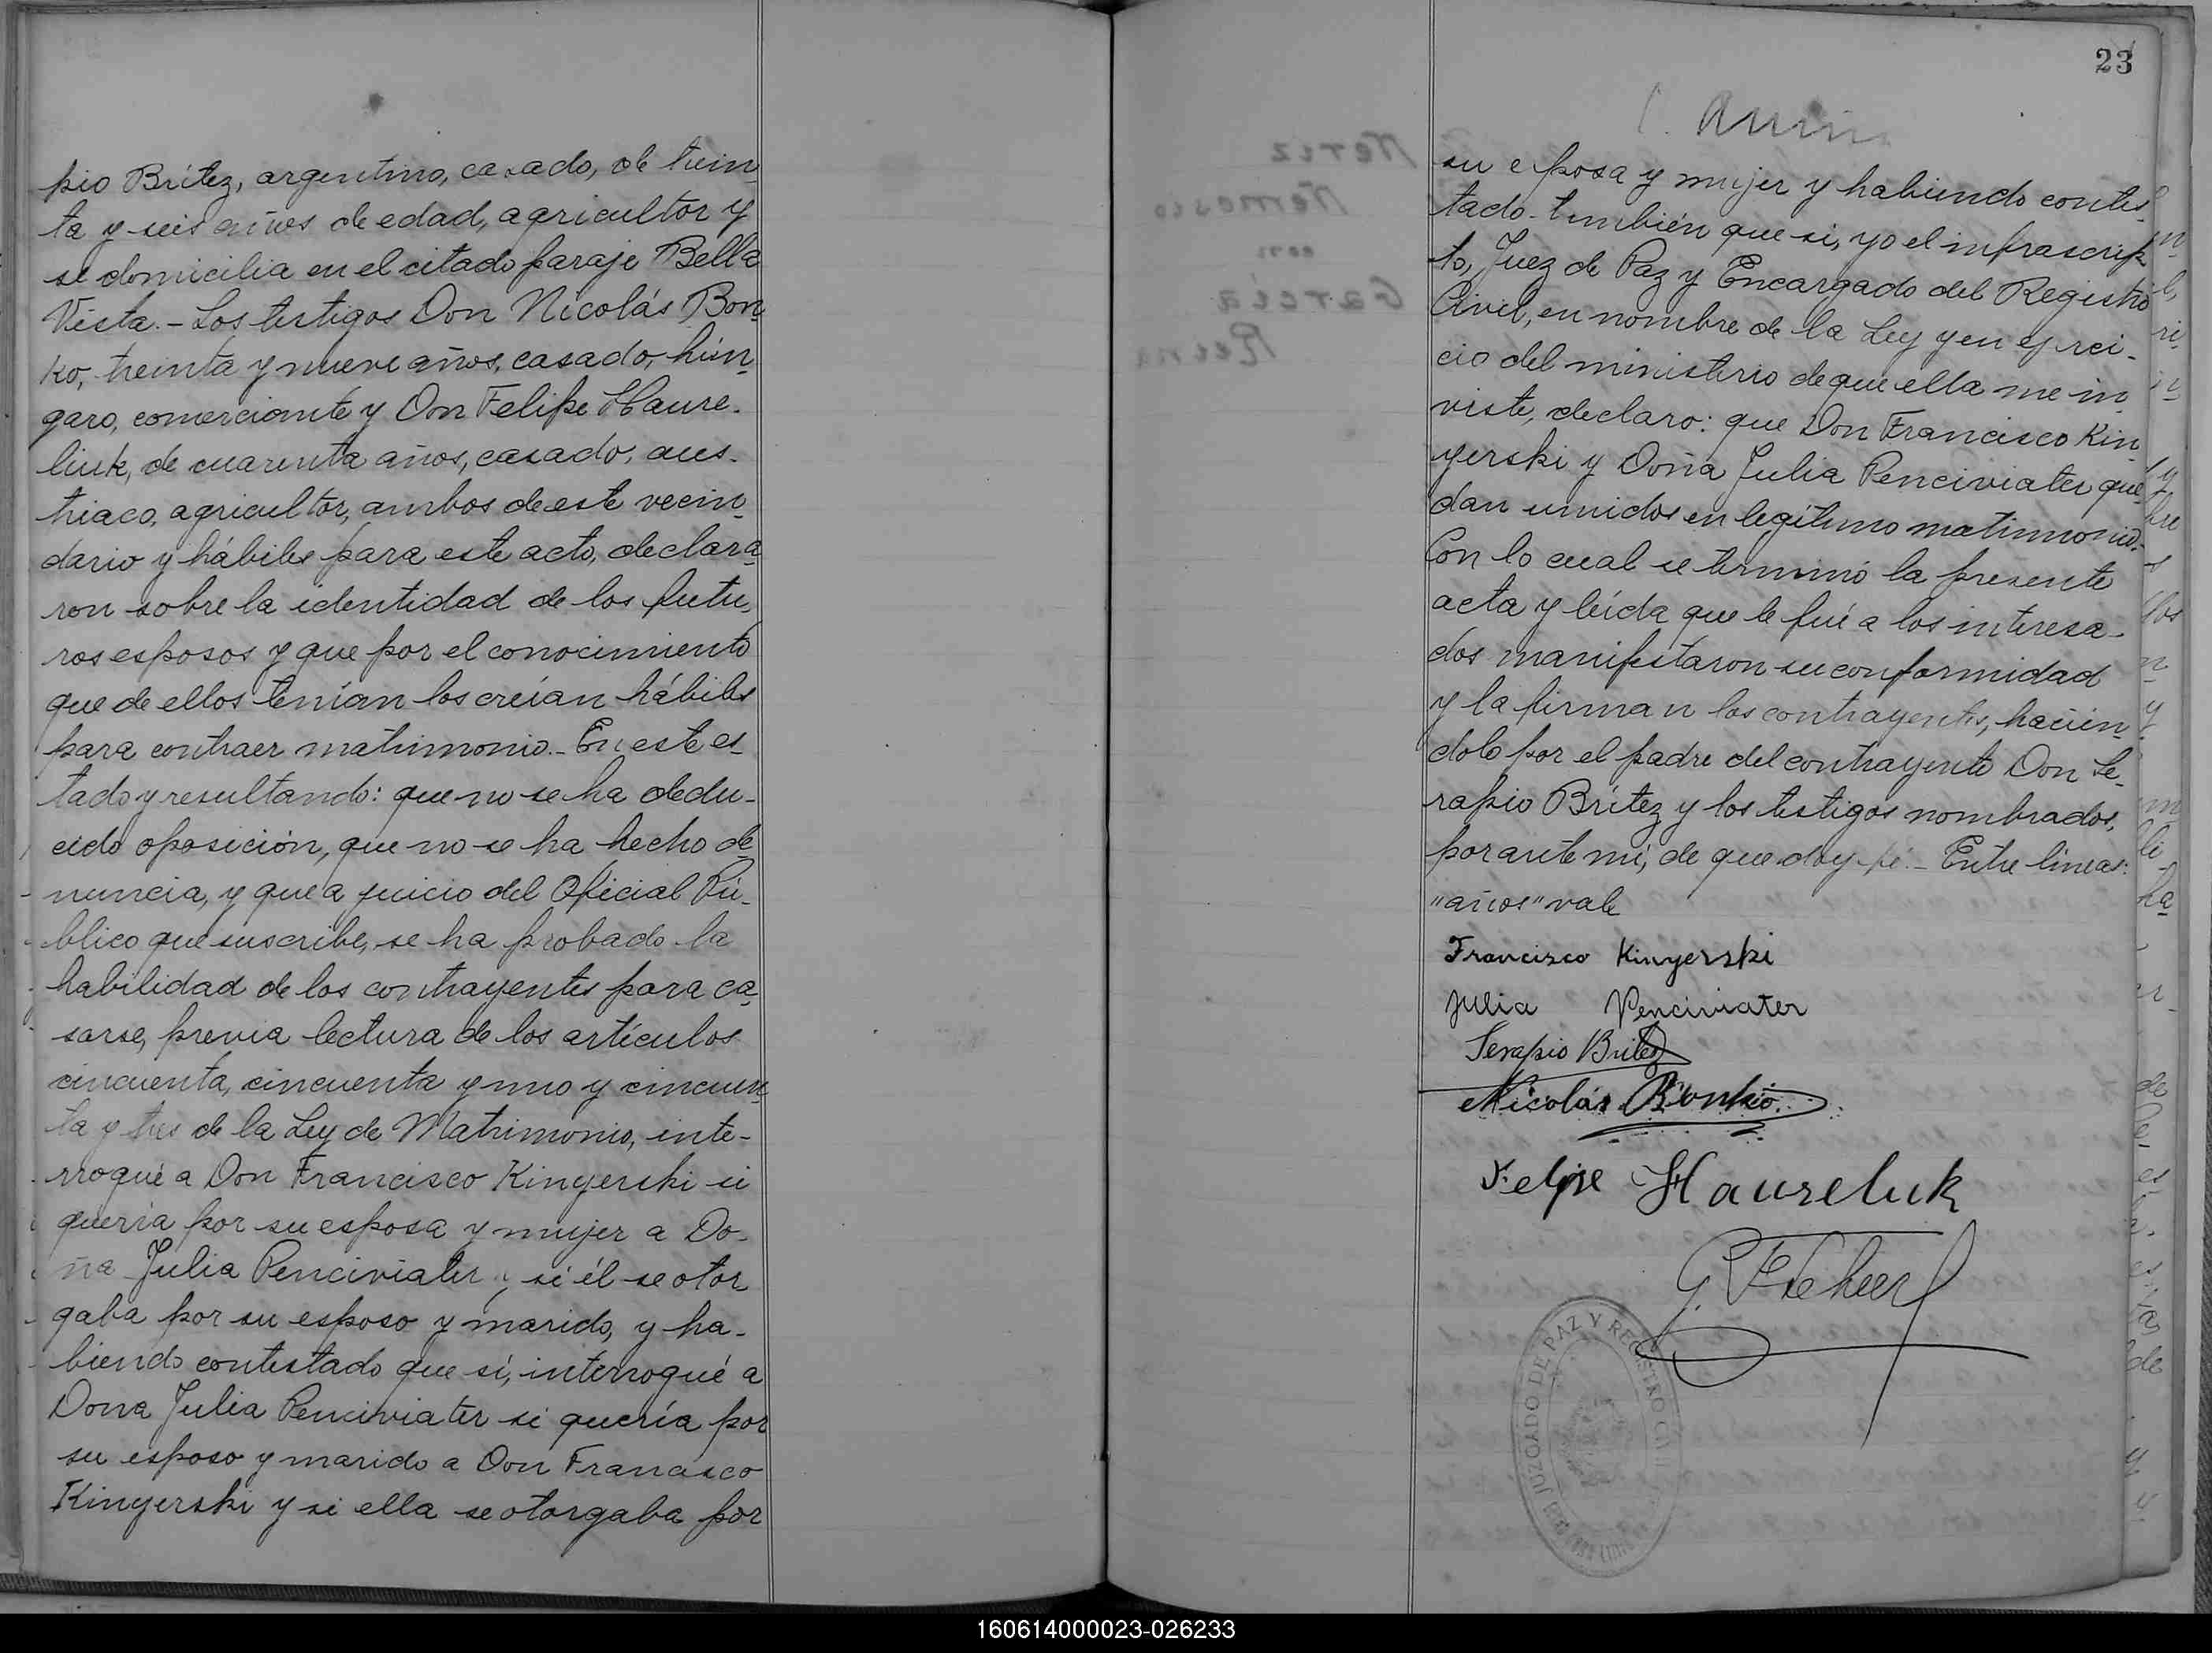 pio Brítez, argentino, casado, de trein
ta y seis años de edad, agricultor y
se domicilia en el citado paraje Bella
Vista.- Los testigos Don Nicolás Bon
ko, treinta y nueve años, casado, hún
garo, comerciante y Don Felipe Haure-
liuk, de cuarenta años, casado, aus-
triaco, agricultor, ambos de este vecin
dario y hábiles para este acto, declara
ron sobre la identidad de los futu-
ros esposos y que por el conocimiento
que de ellos tenían los creían hábiles
para contraer matrimonio.- En este es
tado y resultando: que no se ha dedu-
cido oposición, que no se ha hecho de
nuncia, y que a juicio del Oficial Pú-
blico que suscribe, se ha probado la
habilidad de los contrayentes para ca
sarse, previa lectura de los artículos
cincuenta, cincuenta y uno y cincuen
ta y tres de la Ley de Matrimonio, inte-
rrogué a Don Francisco Kinyerski si
quería por su esposa y mujer a Do-
ña Julia Penciviater y si él se otor
gaba por su esposo y marido, y ha-
biendo contestado que sí, interrogué a
Dona Julia Penciviater si quería por
su esposo y marido a Don Francisco
Kinyerski y si ella se otorgaba por
23
su esposa y mujer y habiendo contes-
tado también que si, yo el infrascrip
to, Juez de Paz y Encargado del Registro
Civil, en nombre de la Ley y en ejerci-
cio del ministerio de que ella me in
viste, declaro: que Don Francisco Kin
yerski y Doña Julia Penciviater que
dan unidos en legítimo matrimonio.-
Con lo cual se terminó la presente
acta y leída que le fué a los interesa-
dos manifestaron su conformidad
y la firman los contrayentes, hacién
dolo por el padre del contrayente Don Se-
rapio Brítez y los testigos nombrados,
por ante mí, de que doy fé.- Entre líneas:
"años" vale
Francisco Kinyerski
Julia Penciviater
Serapio Britez
Nicolás Bonko
Felipe Haureluk
JUZGADO DE PAZ Y REGISTRO CIVIL
160614000023-026233